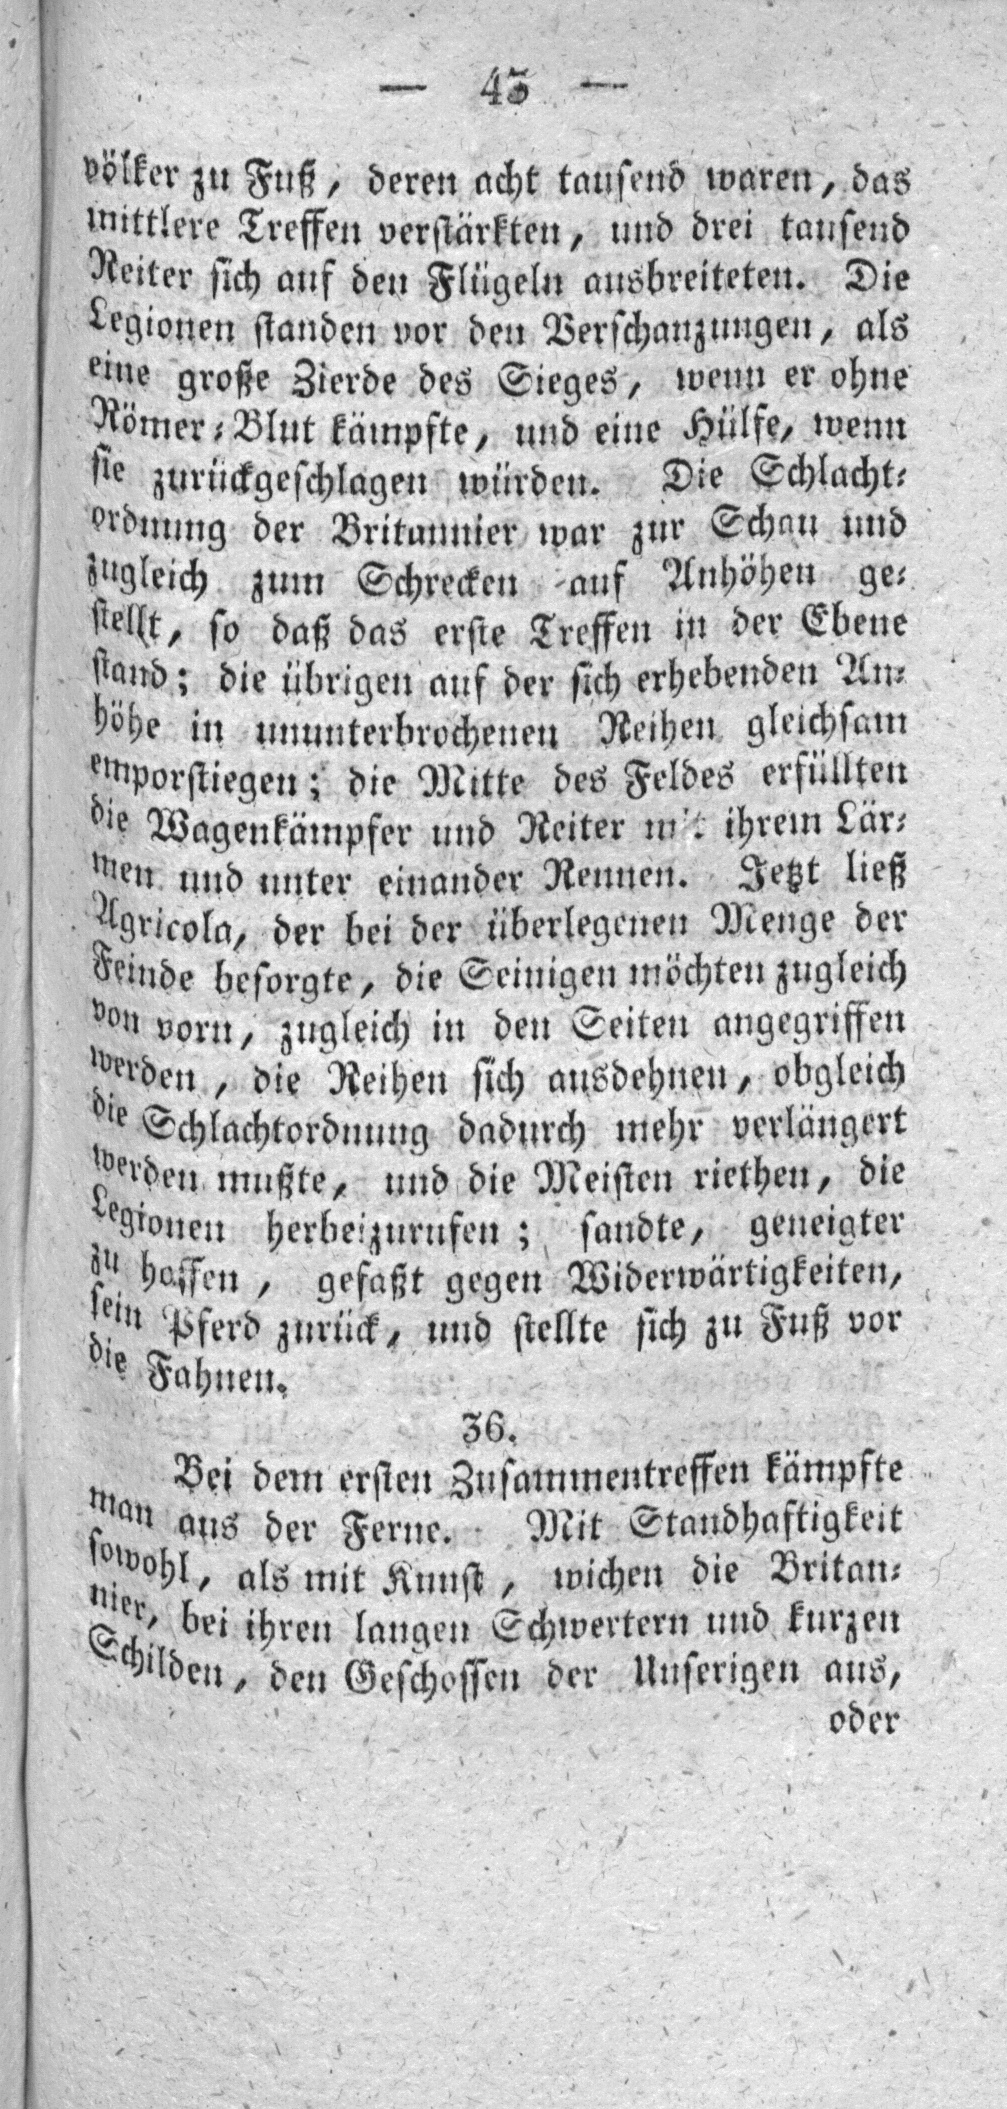 — 43 —
völker zu Fuß, deren acht tausend waren, das
mittlere Treffen verstärkten, und drei tausend
Reiter sich auf den Flügeln ausbreiteten. Die
Legionen standen vor den Verschanzungen, als
eine große Zierde des Sieges, wenn er ohne
Römer-Blut kämpfte, und eine Hülfe, wenn
sie zurückgeschlagen würden. Die Schlacht-
ordnung der Britannier war zur Schau und
zugleich zum Schrecken auf Anhöhen ge-
stellt, so daß das erste Treffen in der Ebene
stand; die übrigen auf der sich erhebenden An-
höhe in ununterbrochenen Reihen gleichsam
emporstiegen; die Mitte des Feldes erfüllten
die Wagenkämpfer und Reiter mit ihrem Lär-
men und unter einander Rennen. Jetzt ließ
Agricola, der bei der überlegenen Menge der
Feinde besorgte, die Seinigen möchten zugleich
von vorn, zugleich in den Seiten angegriffen
werden, die Reihen sich ausdehnen, obgleich
die Schlachtordnung dadurch mehr verlängert
werden mußte, und die Meisten riethen, die
Legionen herbeizurufen; sandte, geneigter
zu hoffen, gefaßt gegen Widerwärtigkeiten,
sein Pferd zurück, und stellte sich zu Fuß vor
die Fahnen.
36.
Bei dem ersten Zusammentreffen kämpfte
man aus der Ferne. Mit Standhaftigkeit
sowohl, als mit Kunst, wichen die Britan-
nier, bei ihren langen Schwertern und kurzen
Schilden, den Geschossen der Unserigen aus,
oder